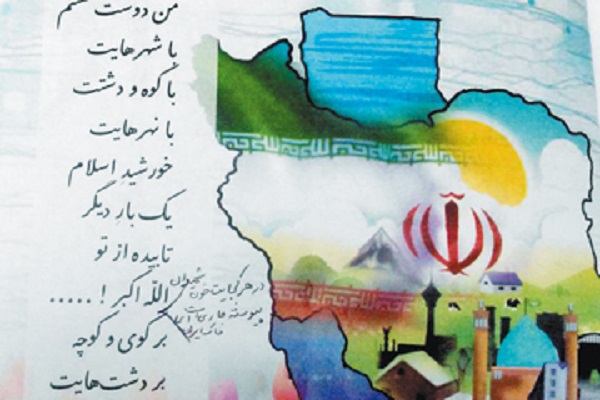 من دوست هستم
با شهرهایت
با کوه و دشتت
با نهرهایت
خورشیدِ اسلام
یک بارِ دیگر
تابیده از تو
اللّه اکبر! .....
بر کوی و کوچه
بر دشت‌هایت
در هر کجایت خون شهیدان
پیوسته جاری است ای
خاک ایران